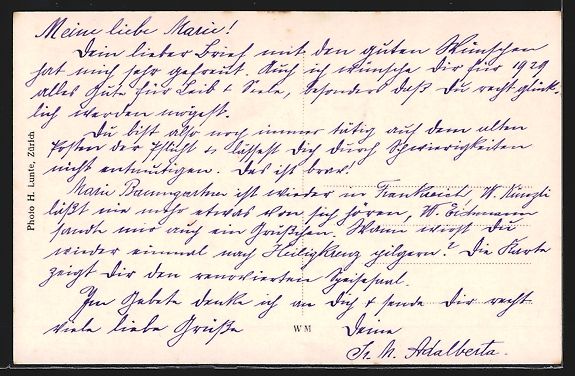 Meine liebe Marie!
Dein lieber Brief mit den guten Wünschen
hat mich sehr gefreut. Auch ich wünsche Dir für 1929
alles Gute für Leib & Seele, besonders daß Du recht glück-
lich werden mögest.
Du bist also noch immer tätig auf dem alten
Posten der Pflicht & lässest Dich durch Schwierigkeiten
nicht entmutigen. Das ist brav.
Marie Baumgartner ist wieder in Frankreich, W. Künzli
läßt nie mehr etwas von sich hören, W. Eichmann
sandte mir auch ein Grüßchen. Wann wirst Du
wieder einmal nach Heiligkreuz pilgern? Die Karte
zeigt Dir den renovierten Speisesaal.
Im Gebete denke ich an Dich & sende Dir recht
viele liebe Grüße
Deine
Sr. M. Adalberta.
Photo H. Lunte, Zürich
WM